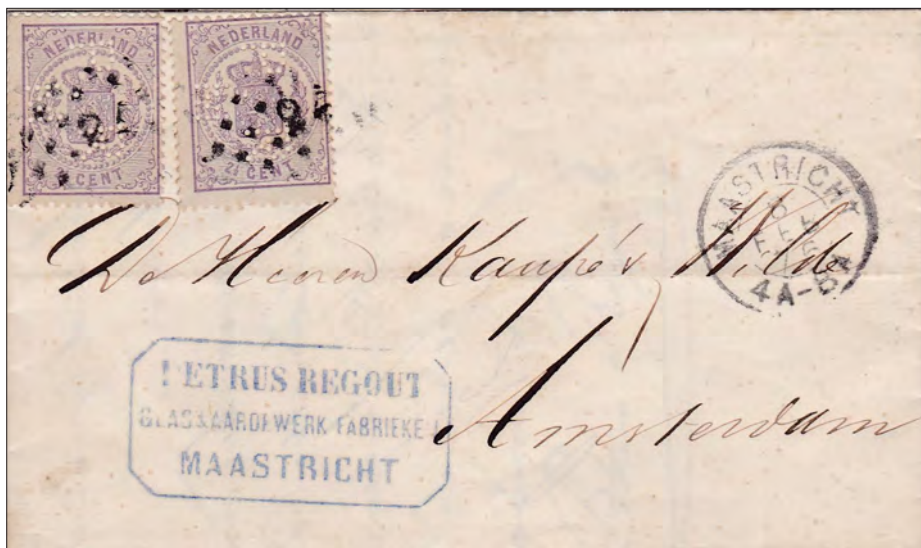 NEDERLAND
CENT
NEDERLAND
2½ CENT
MAASTRICHT
4A-5A
De Heeren
Amsterdam
PETRUS REGOUT
GLAS & AARDEWERK FABRIEKEN
MAASTRICHT